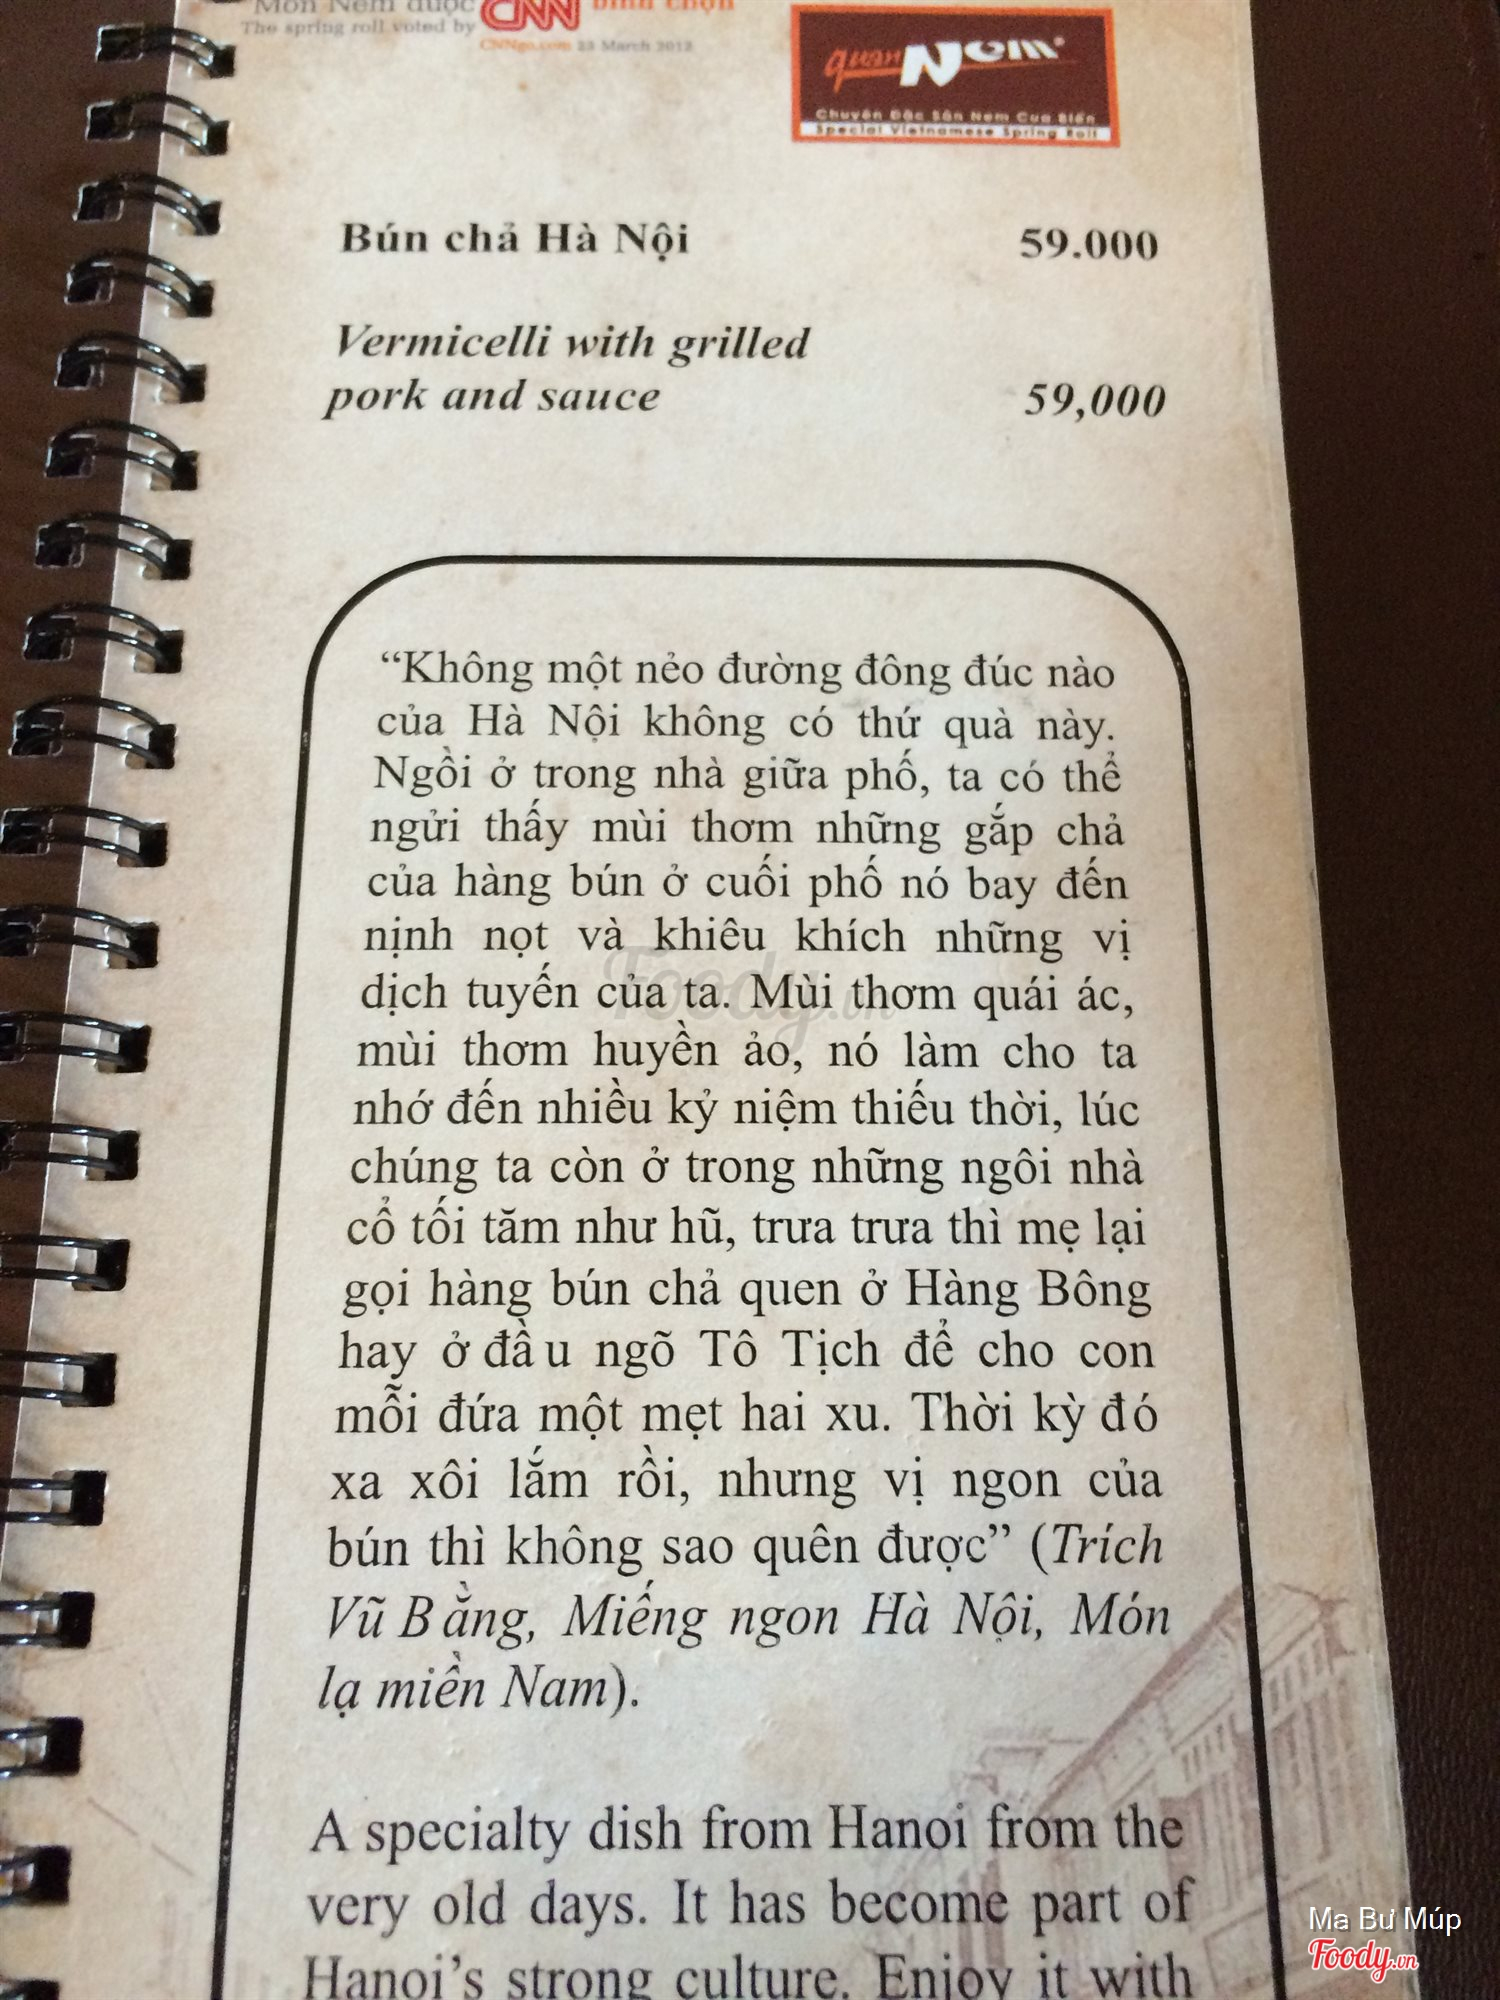 Món Nem được CNN bình chọn
The spring roll voted by
CNNgo.com 23 March 2012
quán Nem®
Chuyên Đặc Sản Nem Cua Biển
Special Vietnamese Spring Roll
Bún chả Hà Nội 59.000
Vermicelli with grilled
pork and sauce 59,000
“Không một nẻo đường đông đúc nào
của Hà Nội không có thứ quà này.
Ngồi ở trong nhà giữa phố, ta có thể
ngửi thấy mùi thơm những gắp chả
của hàng bún ở cuối phố nó bay đến
nịnh nọt và khiêu khích những vị
dịch tuyến của ta. Mùi thơm quái ác,
mùi thơm huyền ảo, nó làm cho ta
nhớ đến nhiều kỷ niệm thiếu thời, lúc
chúng ta còn ở trong những ngôi nhà
cổ tối tăm như hũ, trưa trưa thì mẹ lại
gọi hàng bún chả quen ở Hàng Bông
hay ở đầu ngõ Tô Tịch để cho con
mỗi đứa một mẹt hai xu. Thời kỳ đó
xa xôi lắm rồi, nhưng vị ngon của
bún thì không sao quên được” (Trích
Vũ Bằng, Miếng ngon Hà Nội, Món
lạ miền Nam).
A specialty dish from Hanoi from the
very old days. It has become part of
Hanoi’s strong culture. Enjoy it with
Foody.vn
Ma Bư Múp
Foody.vn